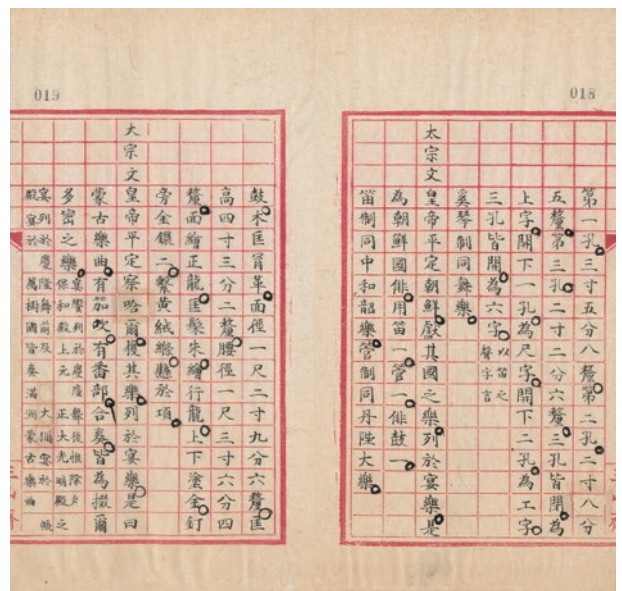 018
第一孔三寸五分八釐第二孔二寸八分
五釐第三孔二寸二分六釐三孔皆閉為
上字開下一孔為尺字開下二孔為工字
三孔皆開為六字以笛之聲字言
奚琴制同舞樂
太宗文皇帝平定朝鮮獻其國之樂列於宴樂是
為朝鮮國俳用笛一管一俳鼓一
笛制同中和韶樂管制同丹陛大樂
019
鼓木匡冐革面徑一尺二寸九分六釐匡
高四寸三分二釐腰徑一尺三寸六分四
釐面繪正龍匡髹朱繪行龍上下塗金釘
旁金鐶二繫黃絨縧懸於項
大宗文皇帝平定察哈爾獲其樂列於宴樂是曰
蒙古樂曲有笳吹有番部合奏皆為掇爾
多密之樂宴饗列於慶隆舞後惟除夕保和殿上元正大光明殿之
宴列於慶隆舞前及大獮宴於帳殿宴於萬樹園皆奏滿洲蒙古樂曲